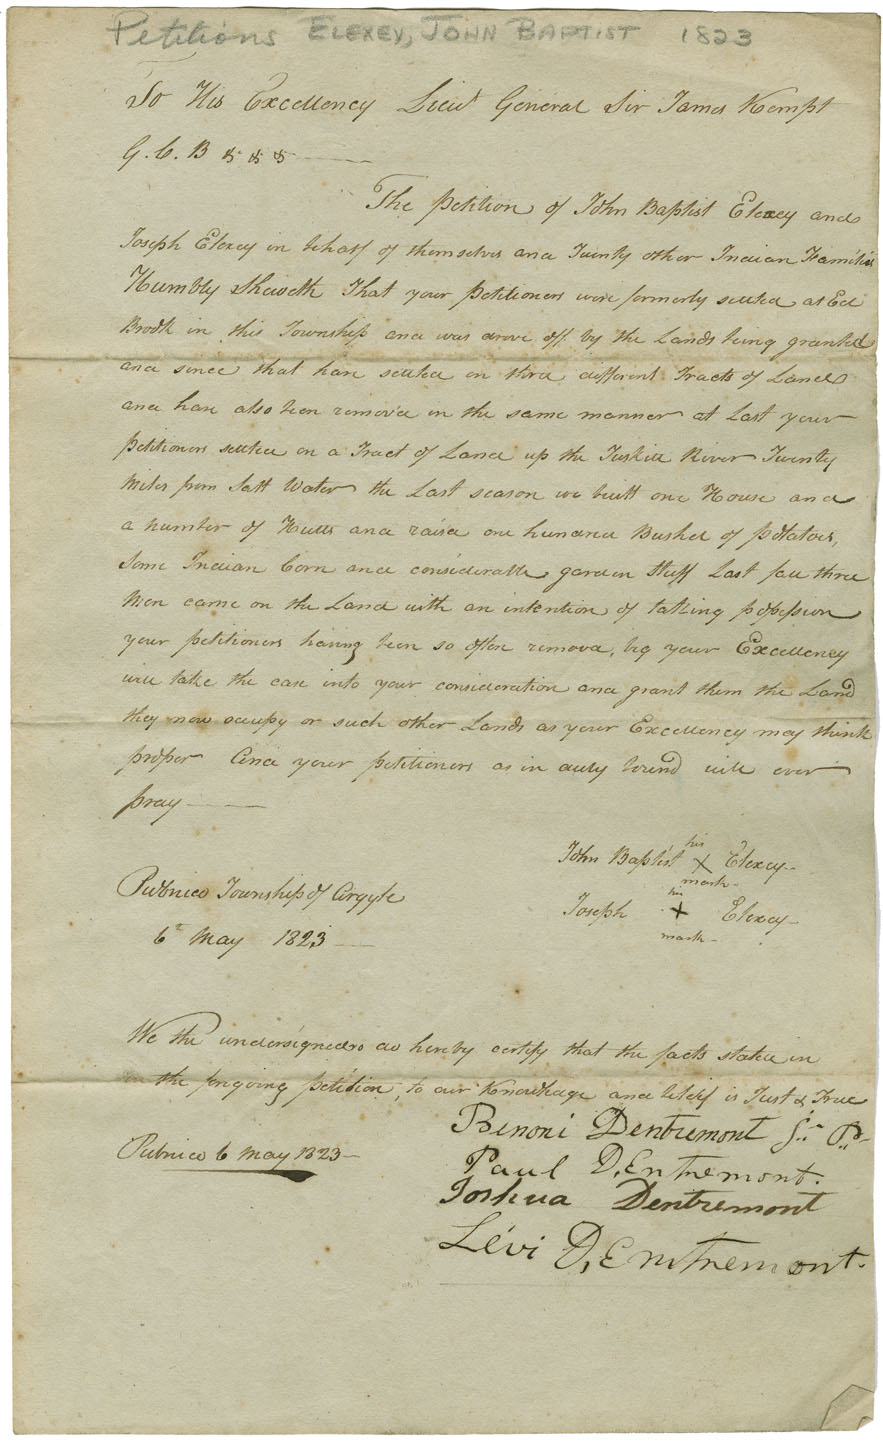 Petitions ELEXEY, JOHN BAPTIST 1823
To His Excellency Lieut General Sir James Kempt
G. C. B & & &
The Petition of John Baptist Elexey and
Joseph Elexey in behalf of themselves and Twenty other Indian Families
Humbly Sheweth That your Petitioners were formerly settled at Eel
Brook in this Township and was drove off by the Lands being granted
and since that have settled on three different Tracts of Land
and have also been remov'd in the same manner at Last your
Petitioners settled on a Tract of Land up the Tuskitt River Twenty
Miles from Salt Water the Last season we built one House and
a number of Hutts and raisd one hundred Bushel of Potatoes,
Some Indian Corn and considerable garden Stuff Last fall three
Men came on the Land with an intention of taking possession
your petitioners having been so often removd, beg your Excellency
will take the case into your consideration and grant them the Land
they now occupy or such other Lands as your Excellency may think
proper And your petitioners as in duty bound will ever
pray
John Baptist his X mark Elexey
Joseph his + mark Elexey
Pubnico Township of Argyle
6th May 1823
We the undersigned do hereby certify that the facts stated in
in the forgoing petition, to our Knowledge and belief is Just & True
Pubnico 6 May 1823
Benoni Dentremont J.. P..
Paul D,Entremont.
Joshua Dentremont
Lévi D,Entremont.